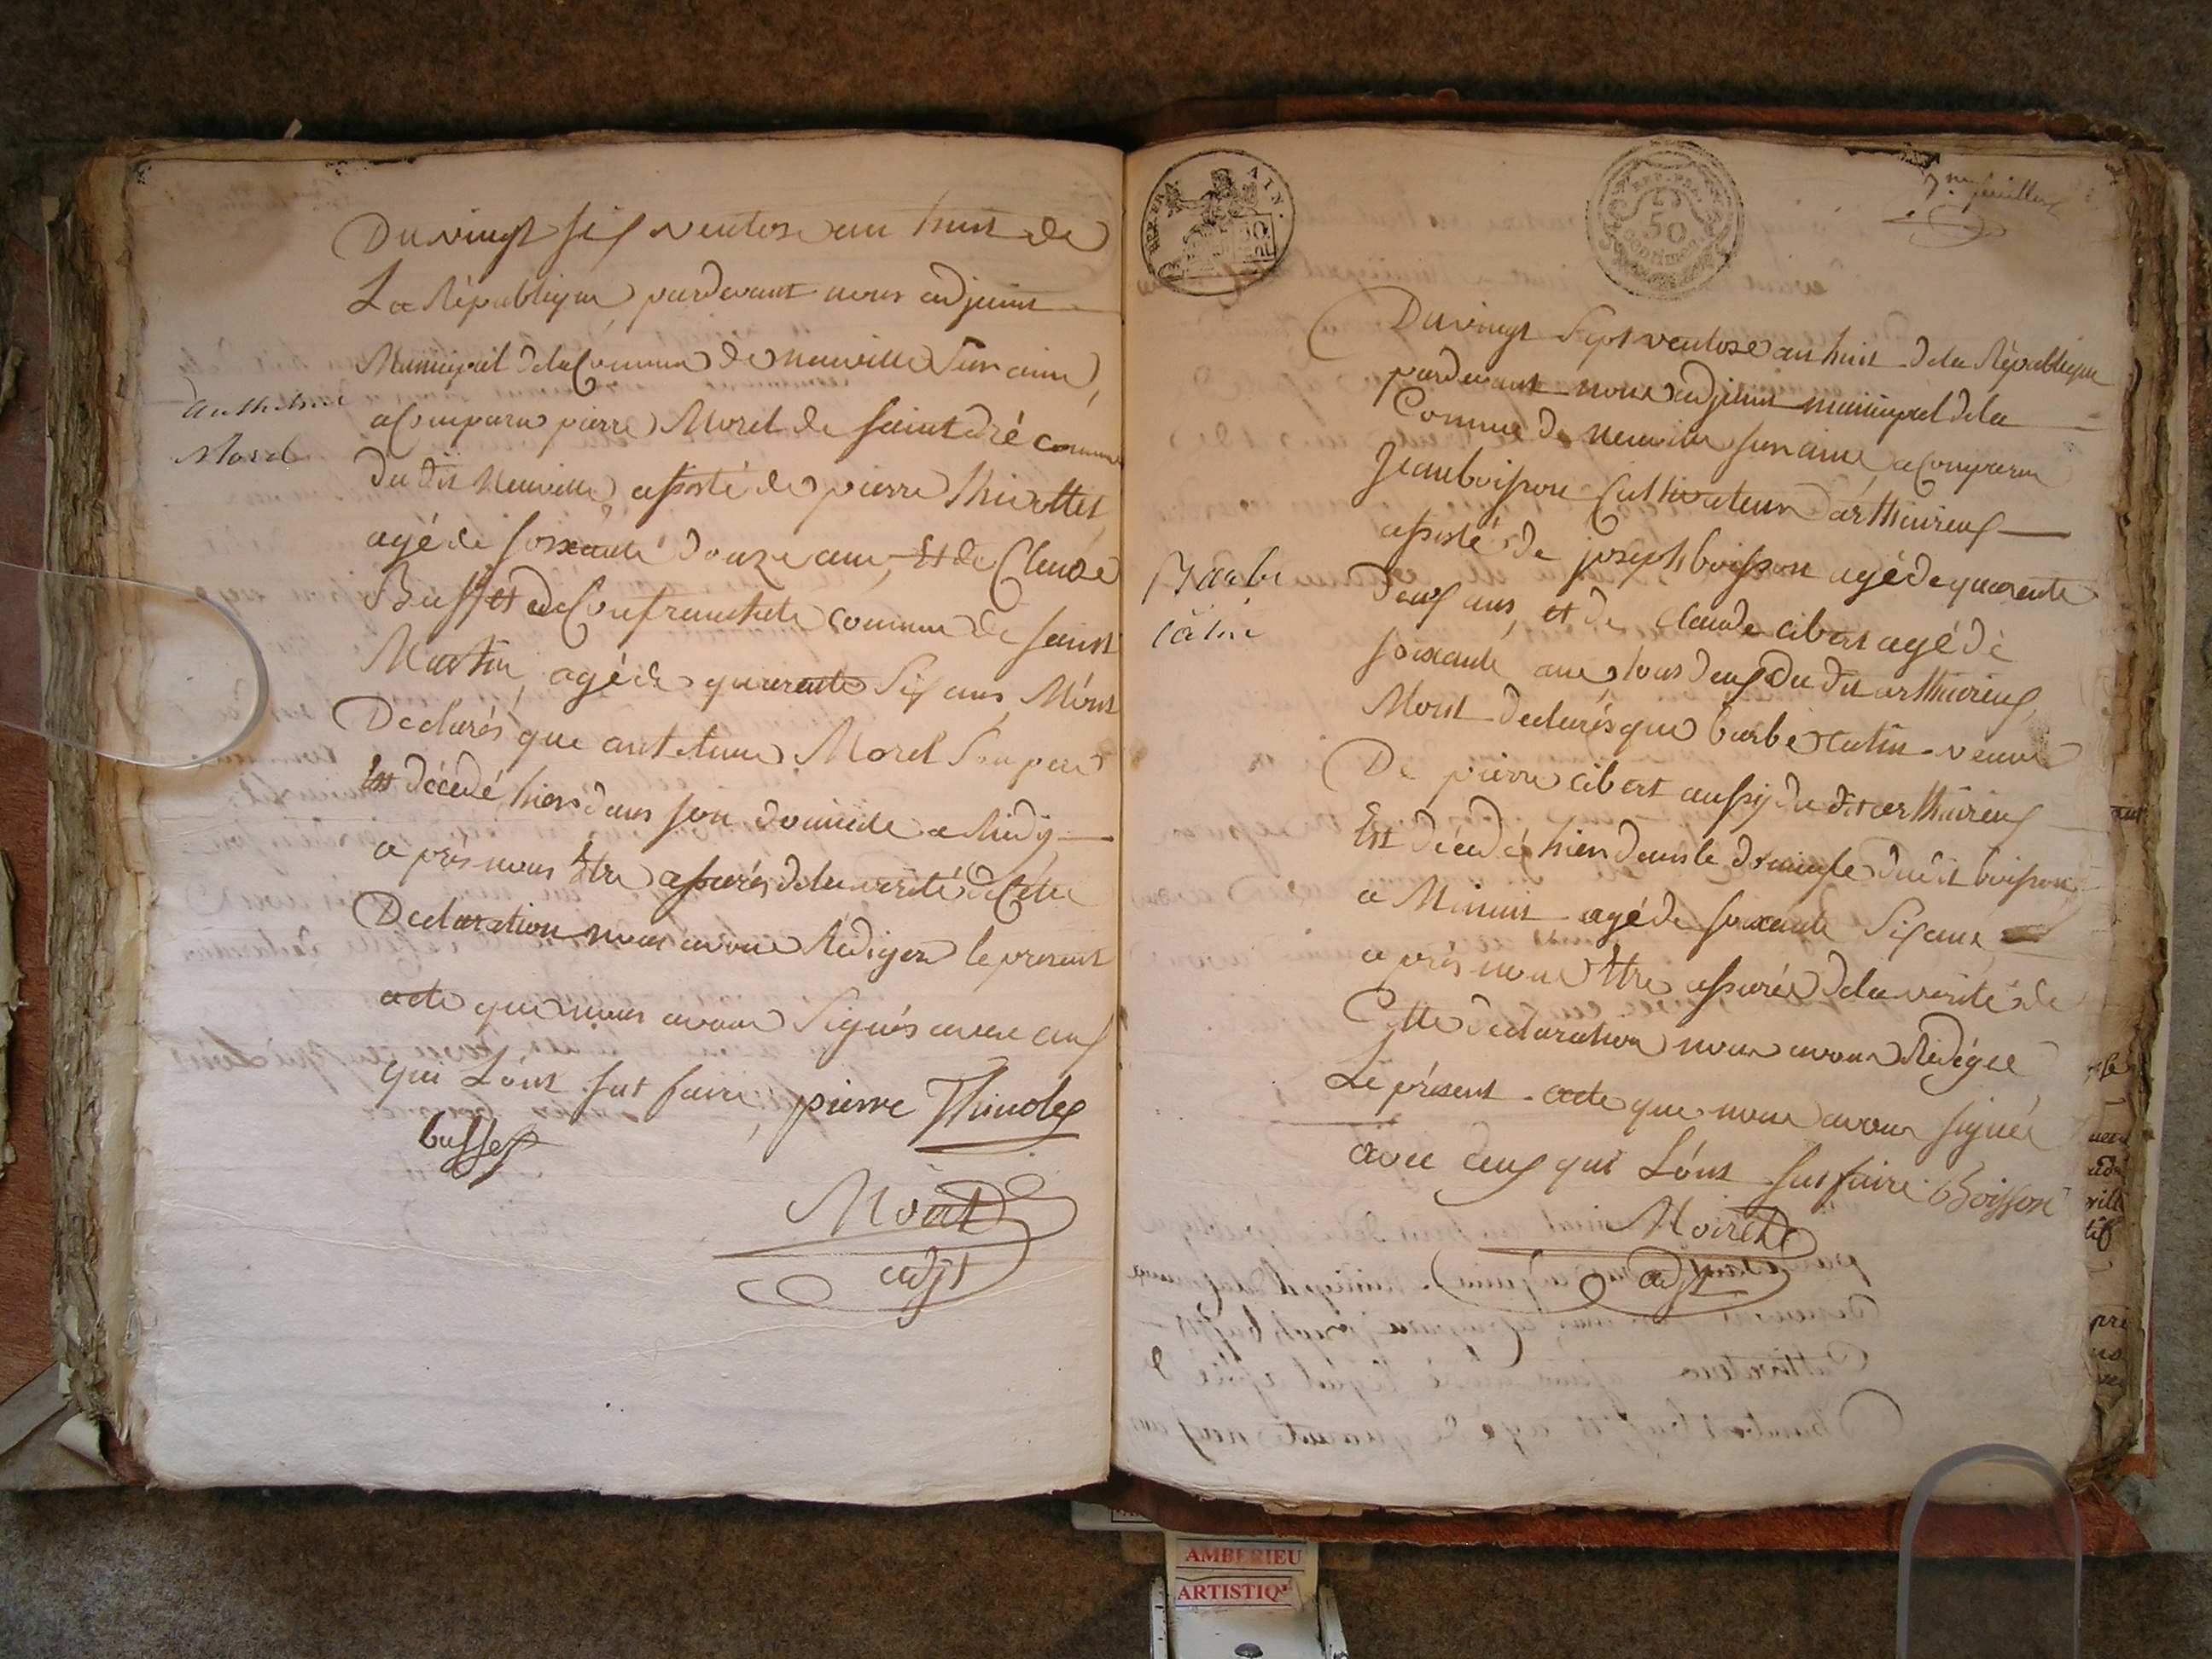 Du vingt six ventose an huit de
La République pardevant nous adjoint
Municipal dela Commune de neuville Sur ain,
a Comparu pierre Morel de saint dré commune
du dit Neuville, assisté de pierre
agé de soixante douze ans, Et de Claude
Buffet de Confranchete commune de saint
Martin, agé de quarante Six ans, M'ont
Declarés que anthelme Morel Son pere
Est décédé hier dans son domicile a Midy
a près nous Etre assurés dela verité de Cette
Declaration nous avons Rédigera le present
acte que nous avons Signés avec eux
qui L'ont sut faire, pierre
buffet
Moiret
adjt
anthelme
Morel
REP. FRA. AIN.
REP. FRA.
50
centimes
7me feuillet
Du vingt Sept ventose an huit dela République
pardevant nous adjoint municipal dela
Commune de neuville sur ain, a Comparu
Jean boisson Cultivateur d'arthuirieux
assisté de joseph boisson agé de quarante
Deux ans, et de Claude cibert agé de
soixante ans tous deux du dit arthuirieux,
Mont declarés que barbe catin veuve
De pierre cibert aussy du dit arthuirieux
Est décédé hier dans le domicile dudit boisson
a Minuit agé de soixante Six ans
a près nous Etre assurés dela verité de
Cette declaration nous avons Rédigée
Le présent acte que nous avons signés
avec Ceux qui L'ont sut faire Boisson
Moiret
adjt
Barbe
catin
AMBERIEU
ARTISTIQ